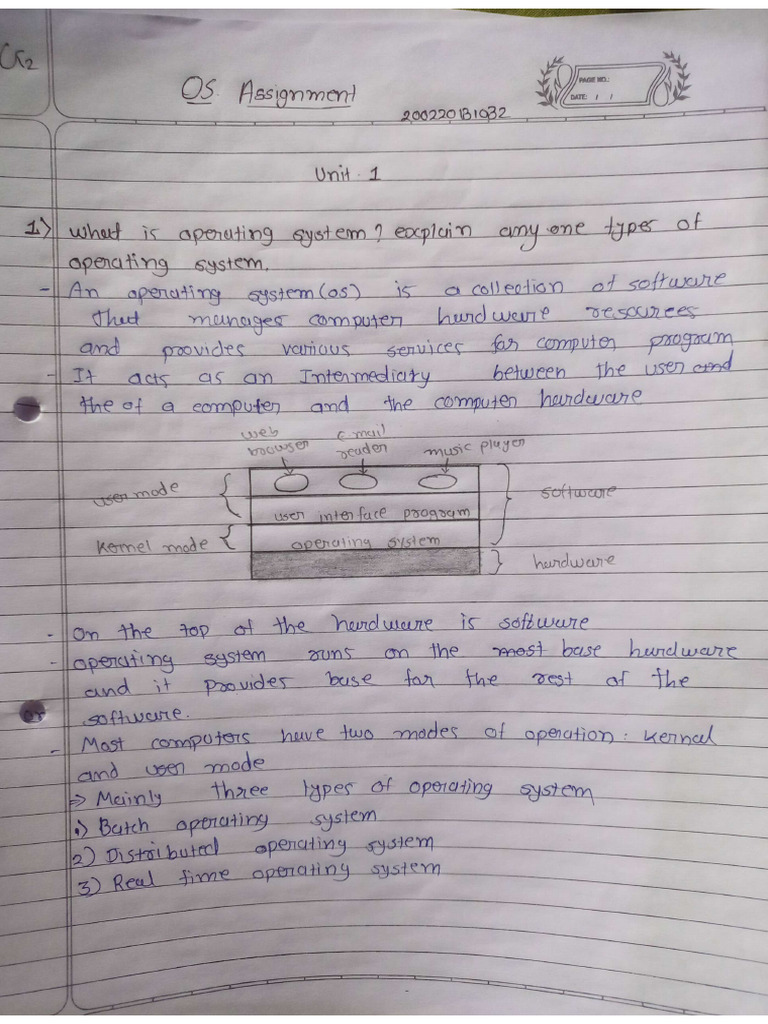 OS. Assignment
PAGE NO.:
DATE: / /
200220131032
Unit. 1
1.) what is operating system? explain any one types of
operating system.
- An operating system(os) is a collection of software
that manages computer hardware resources
and provides various services for computer program
- It acts as an Intermediary between the user and
the of a computer and the computer hardware
web browser
e-mail reader
music player
user mode
software
user interface program
kernel mode
operating system
hardware
- On the top of the hardware is software
- operating system runs on the most base hardware
and it provides base for the rest of the
software.
- Most computers have two modes of operation: kernal
and user mode
⇒ Mainly three types of operating system
1) Batch operating system
2) Distributed operating system
3) Real time operating system